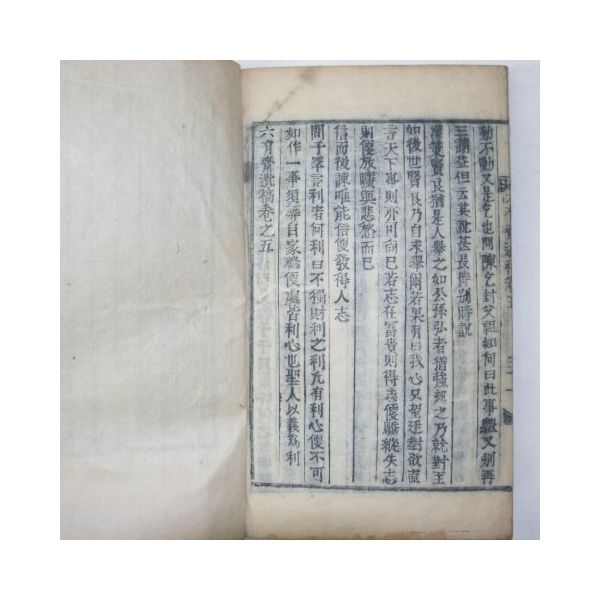 動不動又是乞也問陳乞封父祖如何曰此事體又別再
三請益但云其說甚長待別時說
漢策賢良猶是人舉之如公孫弘者猶強起之乃就對至
如後世賢良乃自求舉爾若果有曰我心只望廷對欲直
言天下事則亦可尚已若志在富貴則得志便驕縱失志
則便放曠與悲愁而已
信而後諫唯能信便發得人志
問子罕言利者何利曰不獨財利之利凡有利心便不可
如作一事須尋自家穩便處皆利心也聖人以義為利
六有齋遺稿卷之五